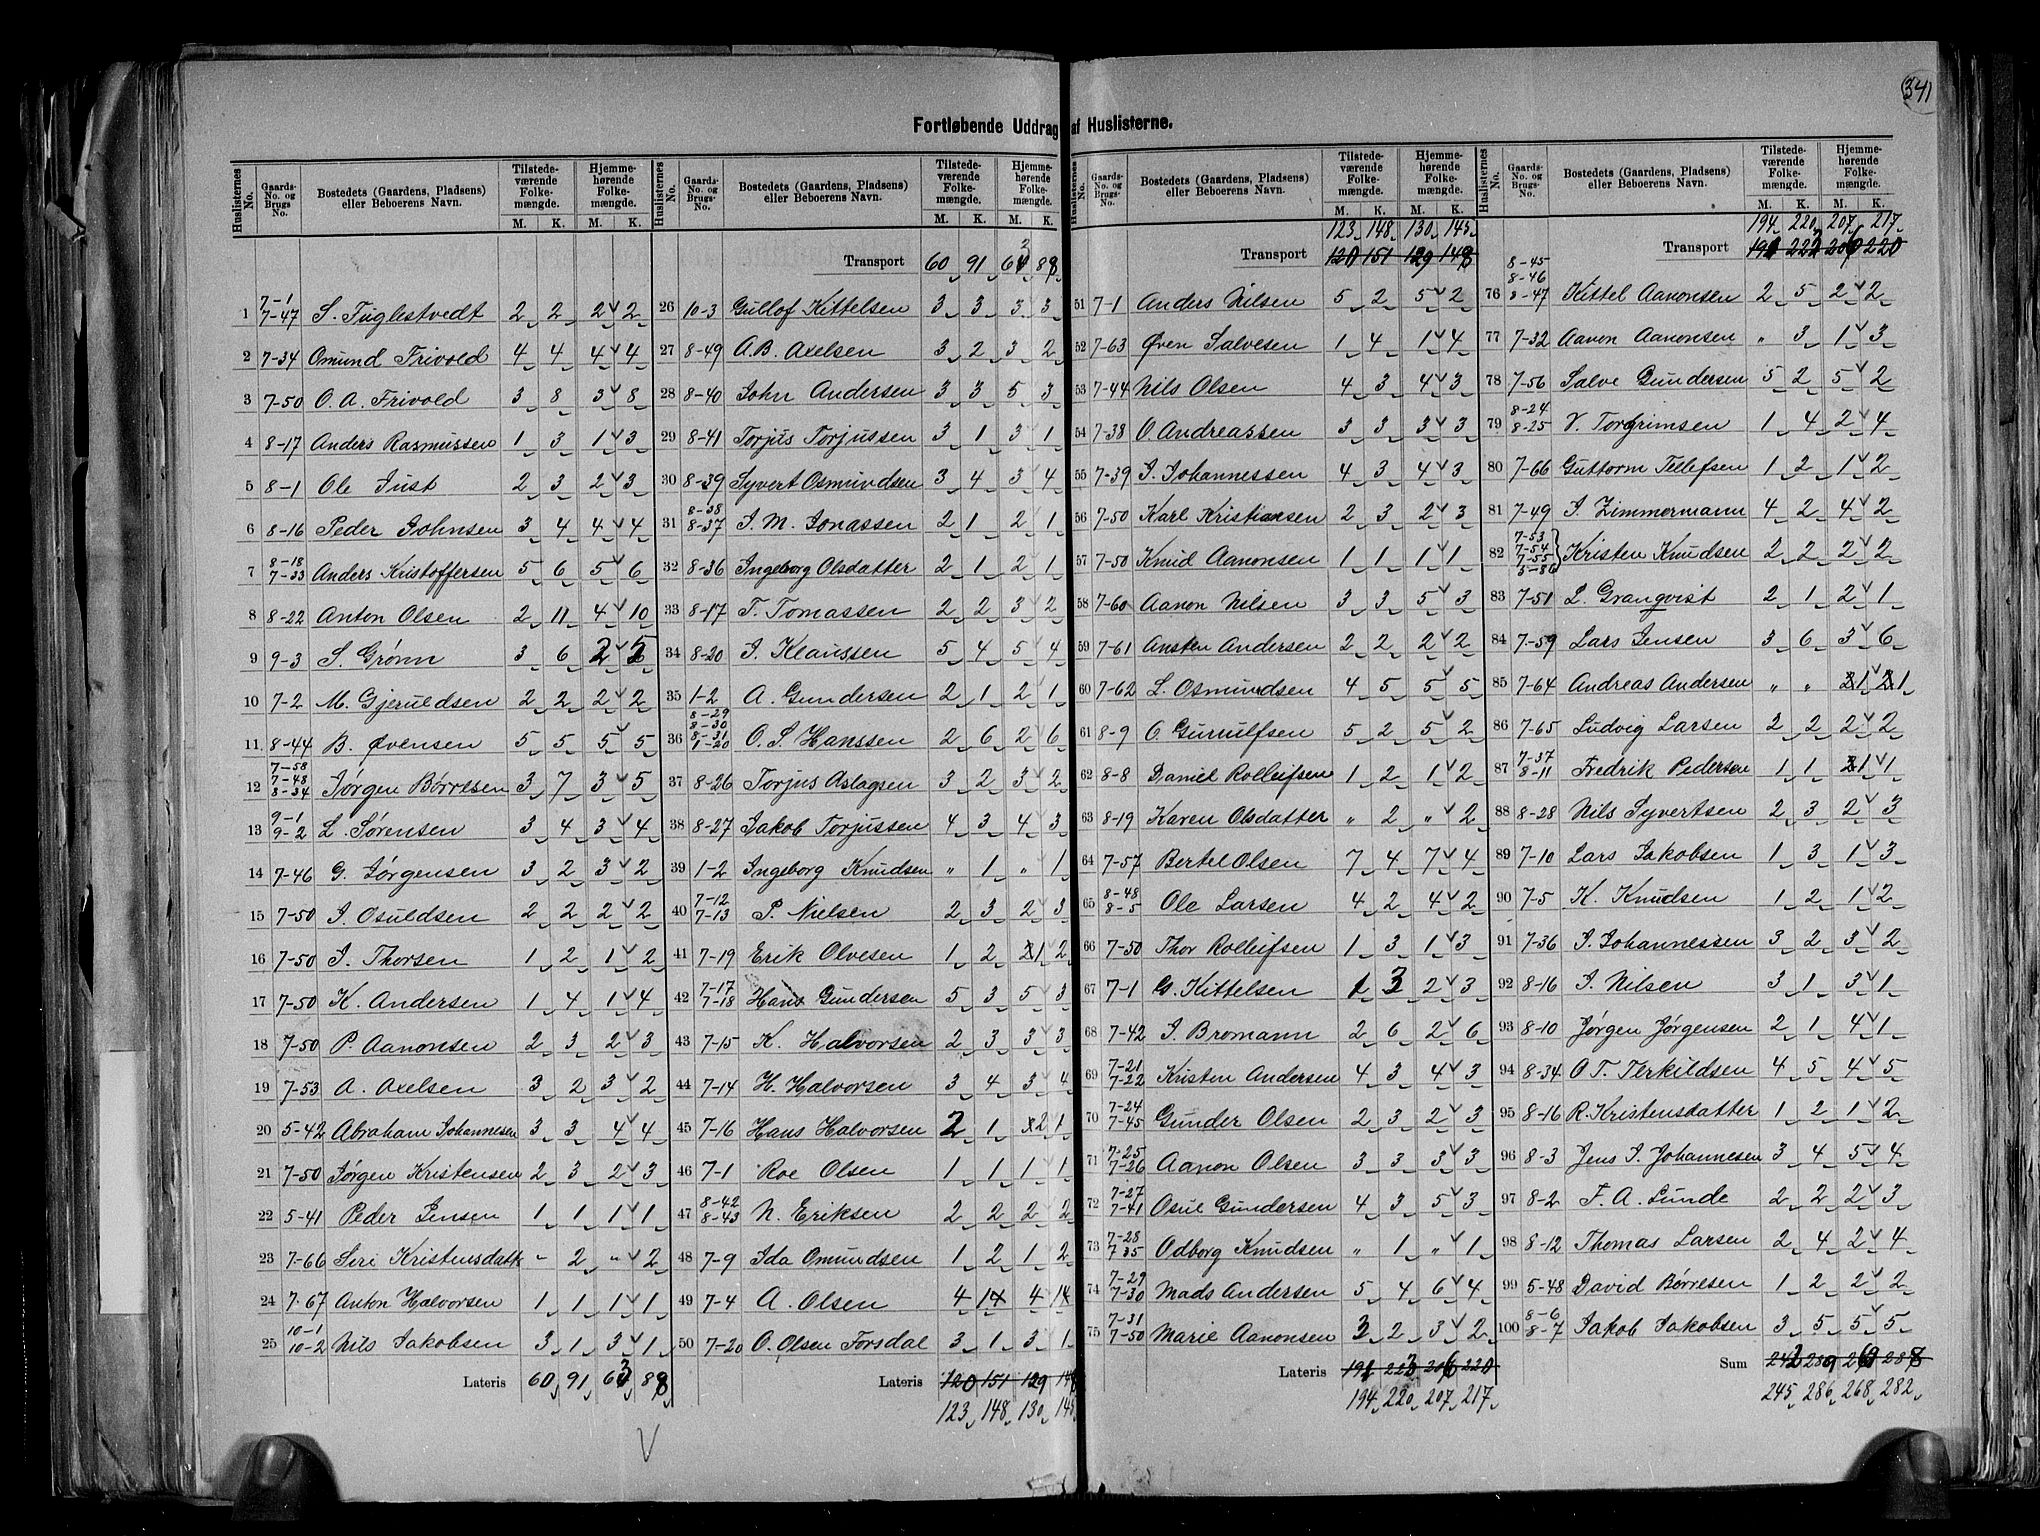 341
Fortløbende Uddrag af Huslisterne.
Huslisternes No. | Gaards-No. og Brugs No. | Bostedets (Gaardens, Pladsens) eller Beboerens Navn. | Tilstedeværende Folkemængde. M. K. | Hjemmehørende Folkemængde. M. K.
Transport
1 7-1 7-47 S. Fuglestvedt 2 2 2 2
2 7-34 Omund Frivold 4 4 4 4
3 7-50 O. A. Frivold 3 8 3 8
4 8-17 Anders Rasmussen 1 3 1 3
5 8-1 Ole Just 2 3 2 3
6 8-16 Peder Johnsen 3 4 4 4
7 8-18 7-33 Anders Kristoffersen 5 6 5 6
8 8-22 Anton Olsen 2 11 4 10
9 9-3 S. Grønn 3 6 2 5
10 7-2 M. Gjeruldsen 2 2 2 2
11 8-44 B. Øvensen 5 5 5 5
12 7-58 7-48 8-34 Jørgen Børresen 3 7 3 5
13 9-1 9-2 L. Sørensen 3 4 3 4
14 7-46 G. Jørgensen 3 2 3 2
15 7-50 J. Osuldsen 2 2 2 2
16 7-50 J. Thorsen 1 2 1 2
17 7-50 K. Andersen 1 4 1 4
18 7-50 P. Aanonsen 2 3 2 3
19 7-53 A. Axelsen 3 2 3 2
20 5-42 Abraham Johannesen 3 3 4 4
21 7-50 Jørgen Kristensen 2 3 2 3
22 5-41 Peder Jensen 1 1 1 1
23 7-66 Siri Kristensdatt " 2 " 2
24 7-67 Anton Halvorsen 1 1 1 1
25 10-1 10-2 Nils Jakobsen 3 1 3 1
Lateris 60 91 63 88
Huslisternes No. | Gaards-No. og Brugs-No. | Bostedets (Gaardens, Pladsens) eller Beboerens Navn. | Tilstedeværende Folkemængde. M. K. | Hjemmehørende Folkemængde. M. K.
Transport 60 91 63 88
26 10-3 Gullof Kittelsen 3 3 3 3
27 8-49 A. B. Axelsen 3 2 3 2
28 8-40 John Andersen 3 3 5 3
29 8-41 Torjus Torjussen 3 1 3 1
30 8-39 Syvert Osmundsen 3 4 3 4
31 8-38 8-37 J. M. Jonassen 2 1 2 1
32 8-36 Ingeborg Olsdatter 2 1 2 1
33 8-17 T. Tomassen 2 2 3 2
34 8-20 J. Klaussen 5 4 5 4
35 1-2 A. Gundersen 2 1 2 1
36 8-29 8-30 8-31 1-20 O. S. Hanssen 2 6 2 6
37 8-26 Torjus Aslagsen 3 2 3 2
38 8-27 Jakob Torjussen 4 3 4 3
39 1-2 Ingeborg Knudsen " 1 " 1
40 7-12 7-13 P. Nielsen 2 3 2 3
41 7-19 Erik Olvesen 1 2 1 2
42 7-17 7-18 Hans Gundersen 5 3 5 3
43 7-15 K. Halvorsen 2 3 3 3
44 7-14 H. Halvorsen 3 4 3 4
45 7-16 Hans Halvorsen 2 1 2 1
46 7-1 Roe Olsen 1 1 1 1
47 8-42 8-43 N. Eriksen 2 2 2 2
48 7-9 Ida Omundsen 1 2 1 2
49 7-4 A. Olsen 4 14 4 14
50 7-20 O. Olsen Forsdal 3 1 3 1
Lateris 120 151 129 148
123 148 130 145
Huslisternes No. | Gaards-No. og Brugs-No. | Bostedets (Gaardens, Pladsens) eller Beboerens Navn. | Tilstedeværende Folkemængde. M. K. | Hjemmehørende Folkemængde. M. K.
123 148 130 145
Transport 120 151 129 148
51 7-1 Anders Nilsen 5 2 5 2
52 7-63 Øven Salvesen 1 4 1 4
53 7-44 Nils Olsen 4 3 4 3
54 7-38 O. Andreassen 3 3 3 3
55 7-39 J. Johannessen 4 3 4 3
56 7-50 Karl Kristiansen 2 3 2 3
57 7-50 Knud Aanonsen 1 1 1 1
58 7-60 Aanon Nilsen 3 3 5 3
59 7-61 Ansten Andersen 2 2 2 2
60 7-62 L. Osmundsen 4 5 5 5
61 8-9 O. Gunnulfsen 5 2 5 2
62 8-8 Daniel Rolleifsen 1 2 1 2
63 8-19 Karen Olsdatter " 2 " 2
64 7-57 Bertel Olsen 7 4 7 4
65 8-48 8-5 Ole Larsen 4 2 4 2
66 7-50 Thor Rolleifsen 1 3 1 3
67 7-1 G. Kittelsen 1 3 2 3
68 7-42 J. Bromann 2 6 2 6
69 7-21 7-22 Kristen Andersen 4 3 4 3
70 7-24 7-45 Gunder Olsen 2 3 2 3
71 7-25 7-26 Aanon Olsen 3 3 3 3
72 7-27 7-41 Osul Gundersen 4 3 5 3
73 7-28 7-35 Odborg Knudsen " 1 " 1
74 7-29 7-30 Mads Andersen 5 4 6 4
75 7-31 7-50 Marie Aanonsen 3 2 3 2
Lateris 191 223 206 220
194 220 207 217
Huslisternes No. | Gaards-No. og Brugs-No. | Bostedets (Gaardens, Pladsens) eller Beboerens Navn. | Tilstedeværende Folkemængde. M. K. | Hjemmehørende Folkemængde. M. K.
194 220 207 217
Transport 191 223 206 220
76 8-45 8-46 8-47 Kittel Aanonsen 2 5 2 2
77 7-32 Aanon Aanonsen " 3 1 3
78 7-56 Salve Gundersen 5 2 5 2
79 8-24 8-25 V. Torgrimsen 1 4 2 4
80 7-66 Guttorm Tellefsen 1 2 1 2
81 7-49 J. Zimmermann 4 2 4 2
82 7-53 7-54 7-55 5-86 Kristen Knudsen 2 2 2 2
83 7-51 L. Granqvist 2 1 2 1
84 7-59 Lars Jensen 3 6 3 6
85 7-64 Andreas Andersen " " 1 1
86 7-65 Ludvig Larsen 2 2 2 2
87 7-37 8-11 Fredrik Pedersen 1 1 1 1
88 8-28 Nils Syvertsen 2 3 2 3
89 7-10 Lars Jakobsen 1 3 1 3
90 7-5 K. Knudsen 1 2 1 2
91 7-36 J. Johannessen 3 2 3 2
92 8-16 J. Nilsen 3 1 3 1
93 8-10 Jørgen Jørgensen 2 1 4 1
94 8-34 O. T. Terkildsen 4 5 4 5
95 8-16 R. Kristensdatter 1 2 1 2
96 8-3 Jens J. Johannesen 3 4 5 4
97 8-2 F. A. Lunde 2 2 2 3
98 8-12 Thomas Larsen 2 4 2 4
99 5-48 David Børresen 1 2 2 2
100 8-6 8-7 Jakob Jakobsen 3 5 5 5
Sum 242 289
245 286 268 282